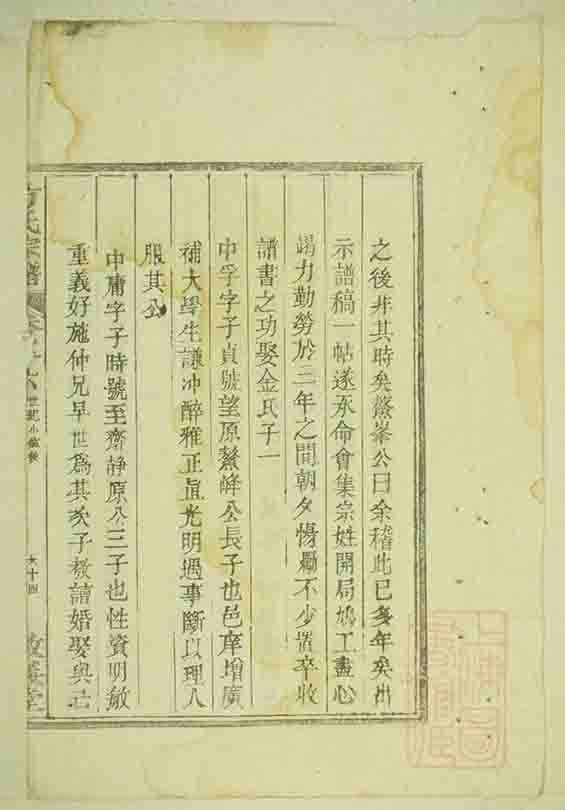 之後非其時矣鰲峯公曰余稽此已多年矣出
示譜稿一帖遂承命會集宗姓開局鳩工盡心
竭力勤勞於三年之間朝夕惕勵不少置卒收
譜書之功娶金氏子一
中孚字子貞號望原鰲峰公長子也邑庠增廣
補大學生謙冲醉雅正直光明遇事斷以理人
服其公
中庸字子時號至齋靜原公三子也性資明敏
重義好施仲兄早世爲其次子教讀婚娶與己
方氏宗譜
世紀小傳後